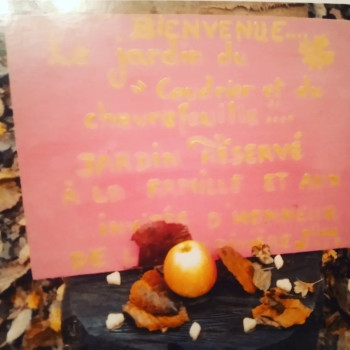 BIENVENUE....
Le jardin du
* Coudrier et du
chèvrefeuille....
JARDIN RÉSERVÉ
À LA FAMILLE ET AUX
INVITÉS D'HONNEUR
DE